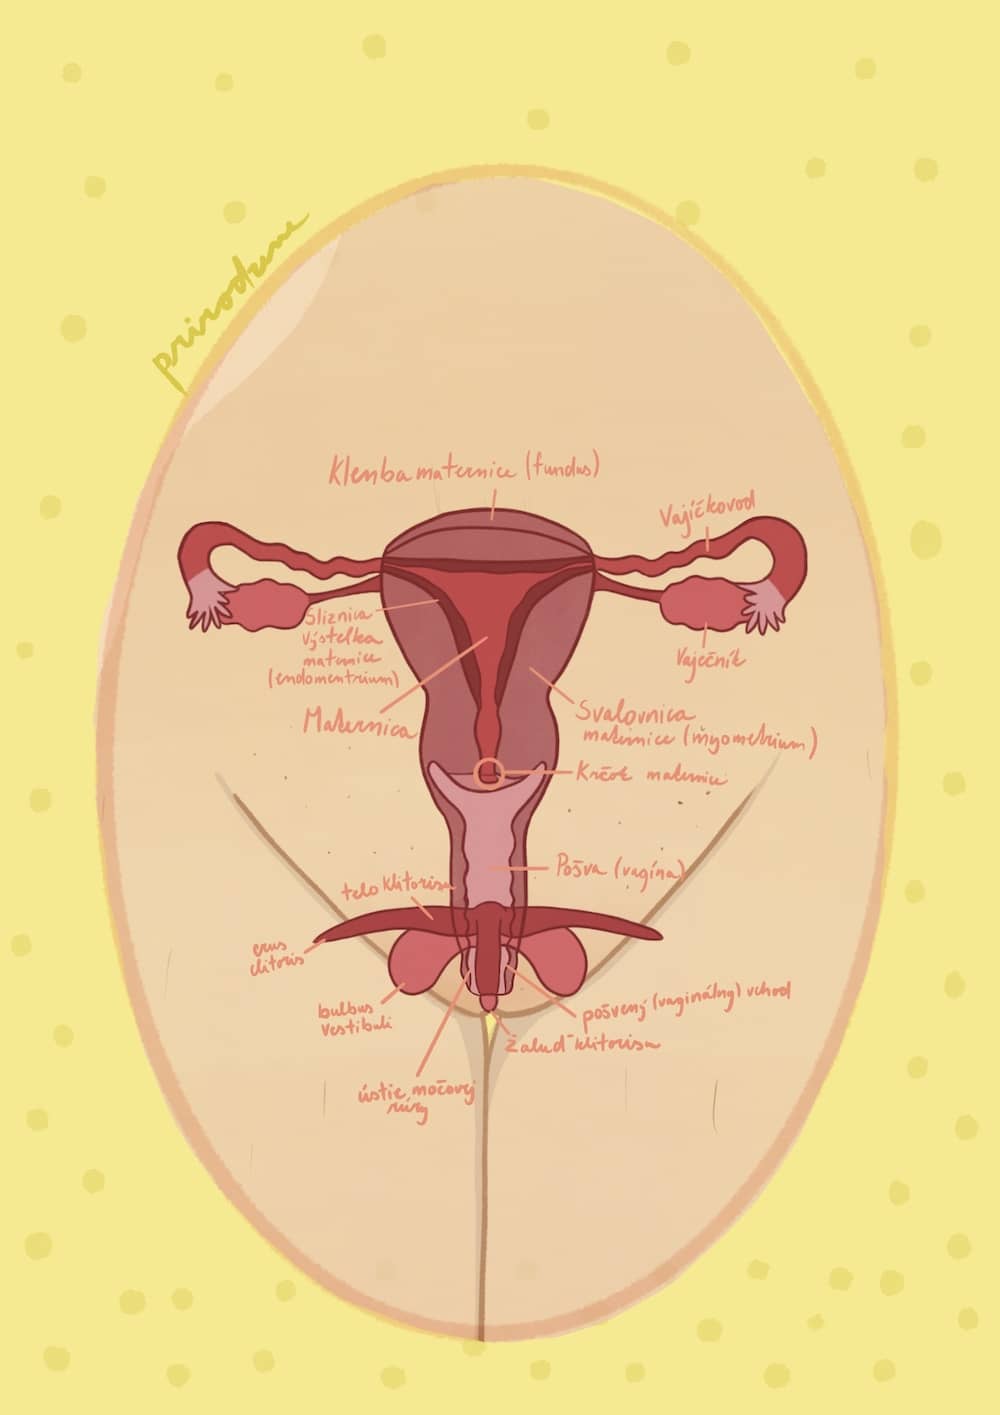 prirodzene
Klenba maternice (fundus)
Vajíčkovod
Sliznica
výstelka
maternice
(endomentrium)
Vaječník
Maternica
Svalovnica
maternice (myometrium)
Krčok maternice
Pošva (vagína)
telo klitorisu
crus
clitoris
bulbus
vestibuli
pošvený (vaginálny) vchod
žaluď klitorisu
ústie močovej
rúry